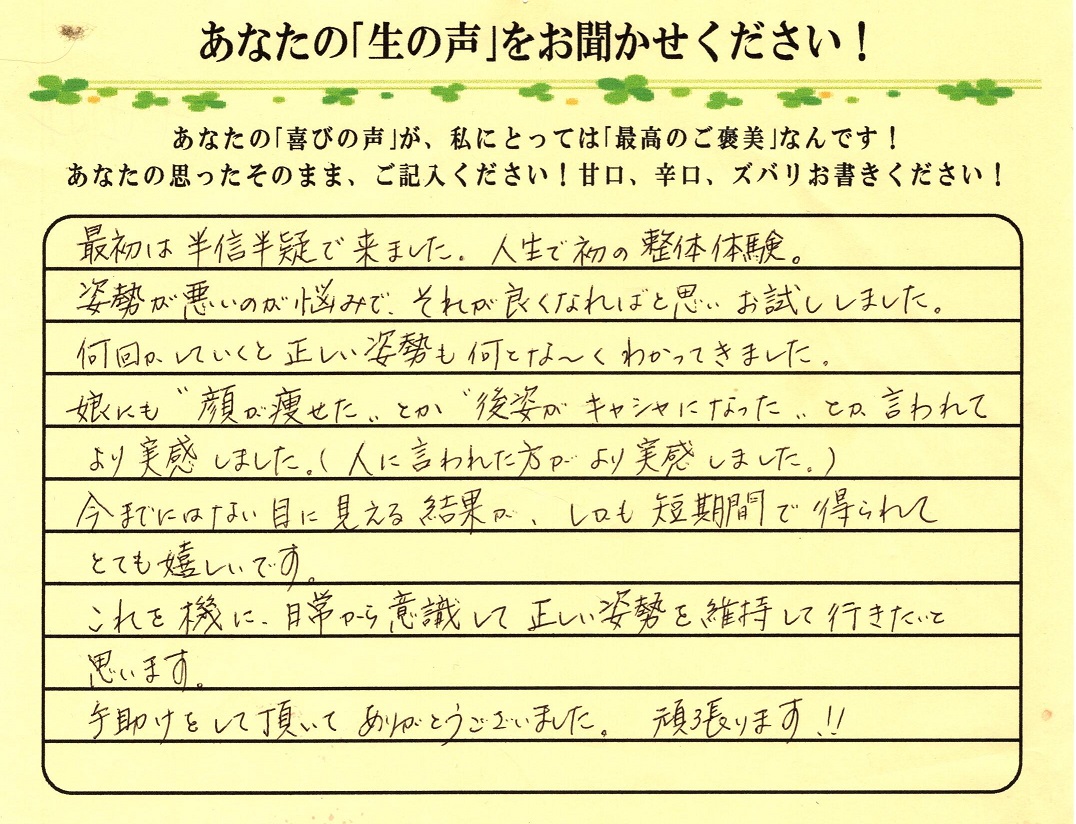 あなたの「生の声」をお聞かせください！
あなたの「喜びの声」が、私にとっては「最高のご褒美」なんです！
あなたの思ったそのまま、ご記入ください！甘口、辛口、ズバリお書きください！
最初は半信半疑で来ました。人生で初の整体体験。
姿勢が悪いのが悩みで、それが良くなればと思いお試ししました。
何回かしていくと正しい姿勢も何とな〜くわかってきました。
娘にも〝顔が痩せた〟とか〝後姿がキャシャになった〟とか言われて
より実感しました。(人に言われた方がより実感しました。)
今までにはない目に見える結果が、しかも短期間で得られて
とても嬉しいです。
これを機に、日常から意識して正しい姿勢を維持して行きたいと
思います。
手助けをして頂いてありがとうございました。 頑張ります!!